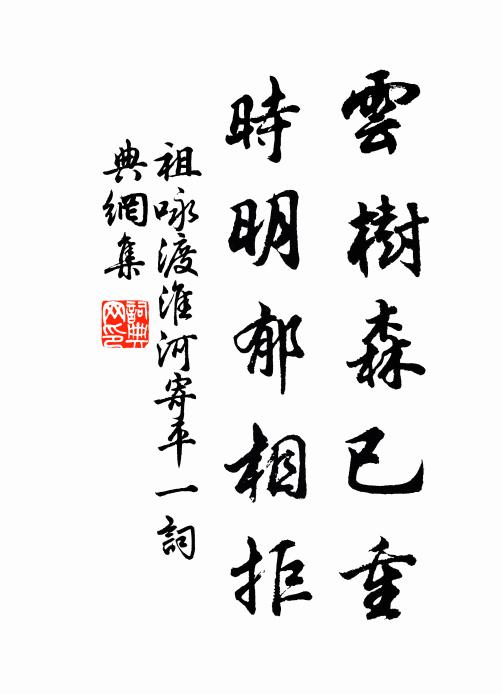 雲樹森已重
時明郁相拒
祖咏渡淮河寄平一詞
典網集
詞典
网印